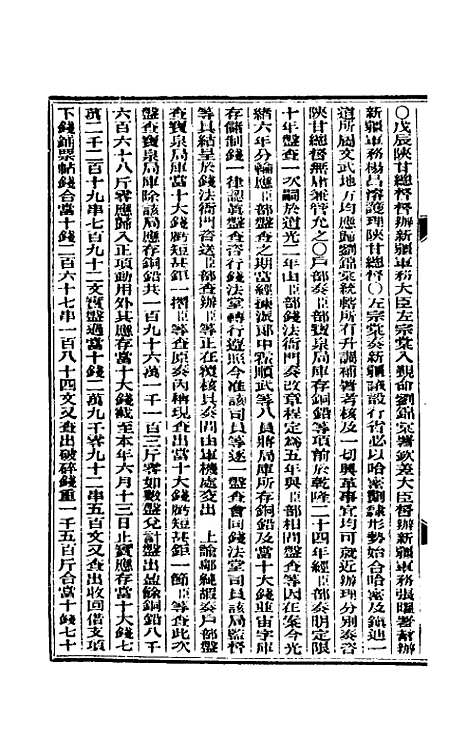 ○戊辰陝甘總督督辦新疆軍務大臣左宗棠入覲命劉錦棠署欽差大臣督辦新疆軍務張曜署幫辦
新疆軍務楊昌濬護理陝甘總督○左宗棠奏新疆議設行省必以哈密關隸形勢始合哈密及鎮迪一
道所屬文武地方均應歸劉錦棠統轄所有升調補署考核及一切興革事宜均可就近辦理分別奏咨
陝甘總督無庸兼管允之○戶部奏臣部寶泉局庫存銅鉛等項前於乾隆二十四年經臣部奏明定限
十年盤查一次嗣於道光二年由臣部錢法衙門奏改章程定為五年與臣部相間盤查等因在案今光
緒六年分輪應臣部盤查之期當經揀派郎中松順武等八員將局庫所存銅鉛及當十大錢並宙字庫
存儲制錢一律認真盤查咨行錢法堂轉行遵照今准該司員等逐一盤查會同錢法堂司員該局監督
等具結呈於錢法衙門咨送臣部查辦臣等正在覆核具奏間由軍機處交出　上諭鄺純嘏奏戶部盤
查寶泉局庫當十大錢虧短甚鉅一摺臣等查原奏內稱現查出當十大錢虧短甚鉅一節臣等查此次
盤查寶泉局庫除該局應存銅鉛共一百九十六萬一千一百三斤零如數盤兌計盤出盈餘銅鉛八千
六百六十八斤零應歸入正項動用外其應存當十大錢截至本年六月十三日止實應存當十大錢七
萬二千二百十九串七百九十二文實盤過當十錢二萬九千零九十二串五百文又查出收回借支項
下錢鋪票帖錢合當十錢二百六十七串一百八十四文又查出破碎錢重一千五百斤合當十錢七十